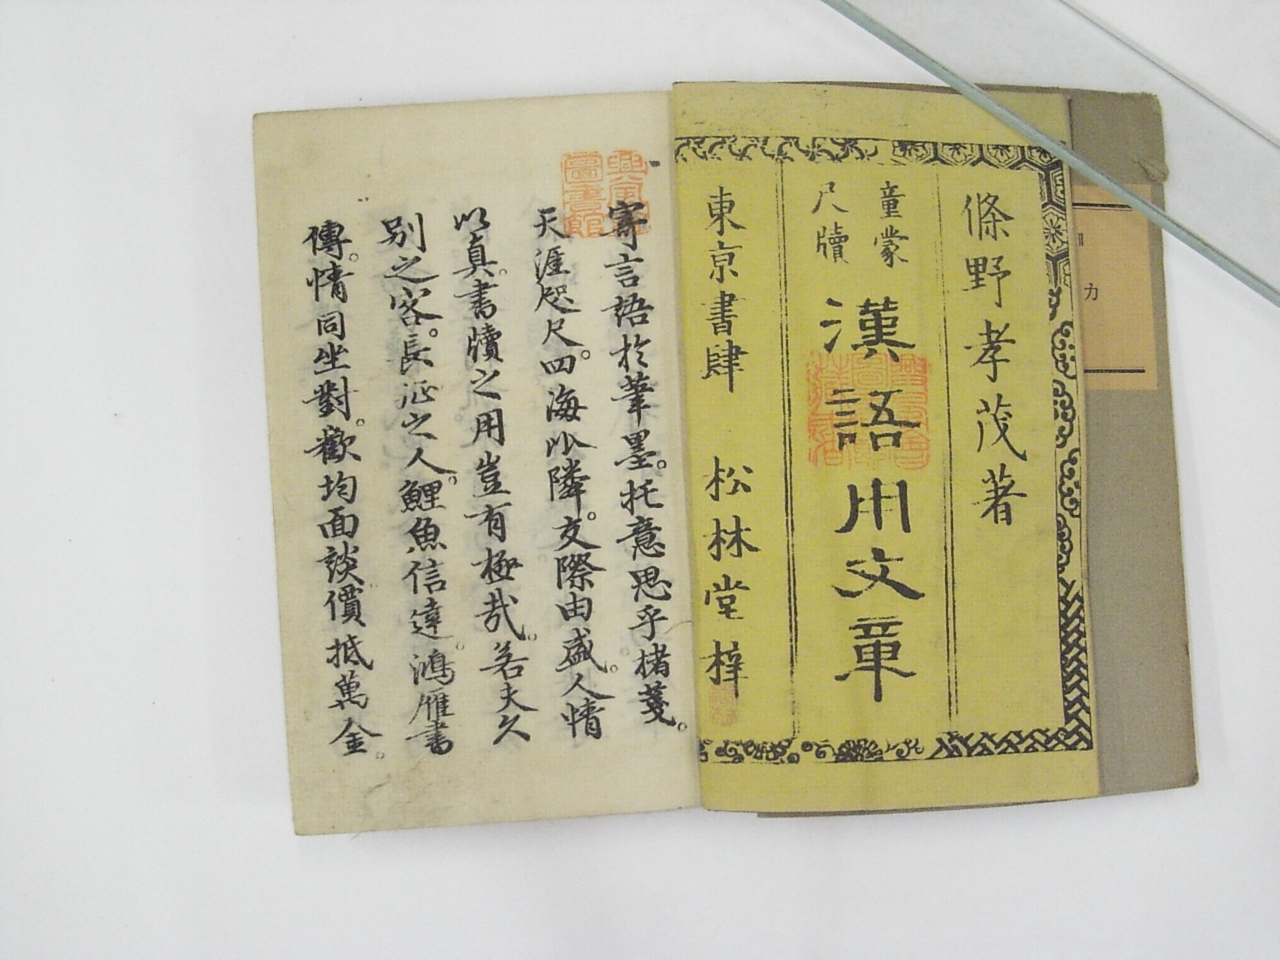 條野孝茂著
童蒙
尺牘
漢語用文章
東京書肆 松林堂梓
寄言語於筆墨。托意思乎楮箋。
天涯咫尺。四海比隣。交際由盛。人情
以真。書牘之用豈有極哉。若夫久
別之客。長征之人。鯉魚信達。鴻雁書
傳。情同坐對。歡均面談。價抵萬金。
力